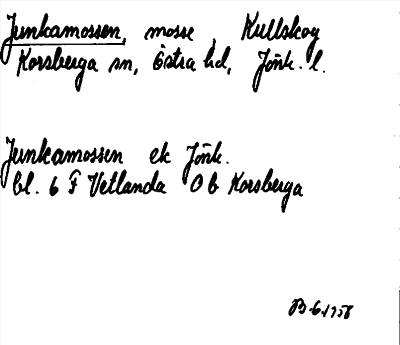 Junkamossen, mosse, Kullskog
Korsberga sn, Östra hd, Jönk. l.
Junkamossen ek Jönk.
bl. 6 F Vetlanda Ob Korsberga